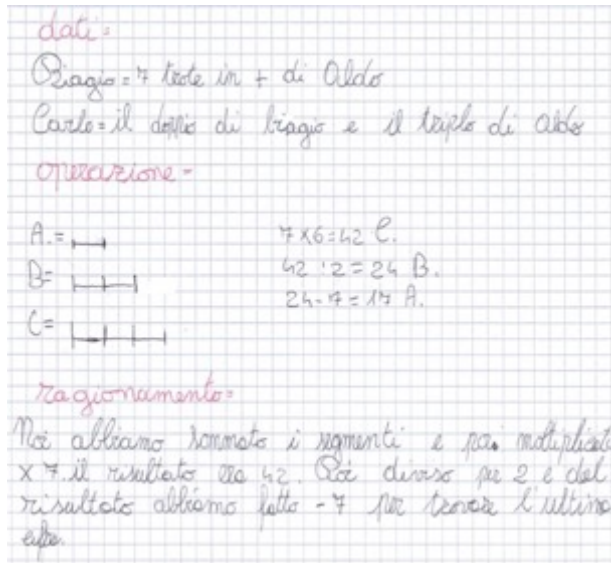 dati=
Biagio=7 trote in + di Aldo
Carlo=il doppio di biagio e il triplo di aldo
operazione=
A.=
7x6=42 C.
B=
42:2=24 B.
24-7=17 A.
C=
ragionamento=
Noi abbiamo sommato i segmenti e poi moltiplicato
x 7. il risultato era 42. Poi diviso per 2 e dal
risultato abbiamo fatto -7 per trovare l'ultimo